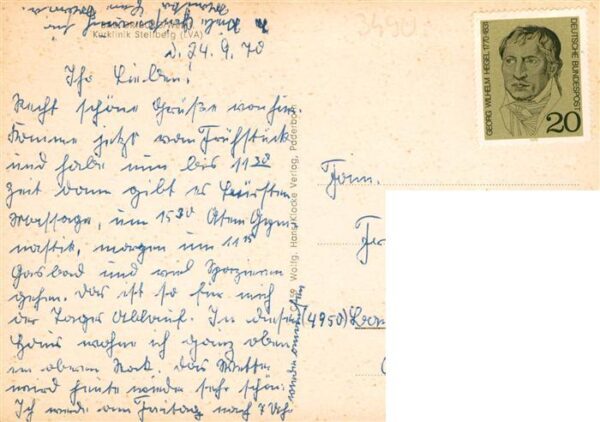 Kurklinik Stellberg (LVA)
d. 24. 9. 70
Ihr Lieben!
Recht schöne Grüße von hier.
Komme jetzt vom Frühstück
und habe nun bis 11 30
Zeit dann gibt es Bürsten
Massage, um 15 30 Atem Gym
nastik, morgen um 11 15
Gasbad und viel Spazieren
gehen. Das ist so für mich
der Tages Ablauf. In diesem
Haus wohne ich ganz oben
im oberen Stock. Das Wetter
wird heute wieder sehr schön.
Ich werde am Freitag nach 7 Uhr
wieder anrufen
Wolfg. Hans Klocke Verlag, Paderborn
3490
GEORG WILHELM HEGEL 1770-1831
DEUTSCHE BUNDESPOST
20
Fam.
(4950)